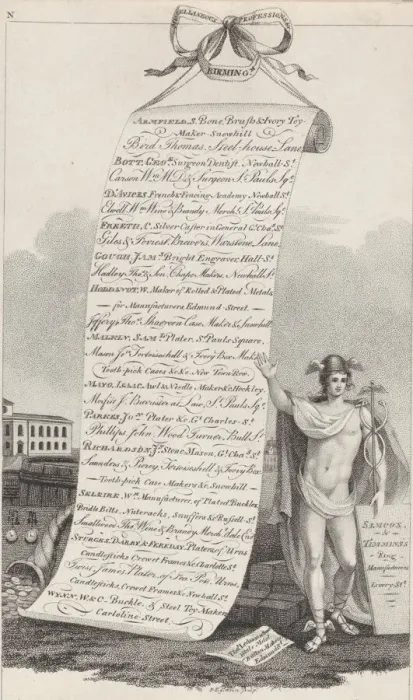 N
MISCELLANEOUS PROFESSIONS
BIRMING^m
ARMFIELD, S. Bone, Brush & Ivory Toy
Maker Snowhill
Bird Thomas, Steel-house Lane
BOTT, GEO. Surgeon Dentist. Newhall St.
Carson Wm. M.D. & Surgeon St. Pauls Sqe.
French & Fencing Academy Newhall St.
Elwell Wm. Wine & Brandy Mercht. St. Pauls Sqe.
FREETH, C. Silver Caster in General Gt. Cha.s St.
Giles & Forrest, Brewers, Warstone Lane,
GOUGH, JAMs. Bright Engraver, Hall St.
Hadley Thos. & Son Chape Makers, Newhall St.
W. Maker of Rolled & Plated Metals
for Manufacturers Edmund Street
Jeffery Thos. Shagreen Case Maker & Snowhill
SAMl. Plater, St. Pauls Square
Mason Jos. Tortoiseshell & Ivory Box Maker
Tooth-pick Cases &c &c New Town Row.
MAYO, ISAAC, Awl & Needle Maker & Hockley.
J. Barrister at Law, St. Pauls Sqe.
PARKES, Jno. Plater &c. Gt. Charles St.
Phillips John Wood Turner, Bull St.
RICHARDSON, Jas. Stone Mason, Gt. Cha.s St.
Saunders & Piercy, Tortoiseshell & Ivory Box
Tooth-pick Case Makers &c Snowhill
Wm. Manufacturer of Plated Buckles
Bridle Bitts, Nutcracks, Snuffers &c Russell St.
Smallwood Thos. Wine & Brandy Mercht.
DARBY & FEREDAY, Platers of Urns
Candlesticks Crewet Frames &c Charlotte St.
James, Plater, of Tea Pots, Urns,
Candlesticks, Crewet Frames &c Newhall St.
WENN, W. & C. Buckle & Steel Toy Makers
Caroline Street.
SIMCOX
&
TIMMINSS
Ring
Manufacturers
Livery St.
Button Maker
Edmund St.